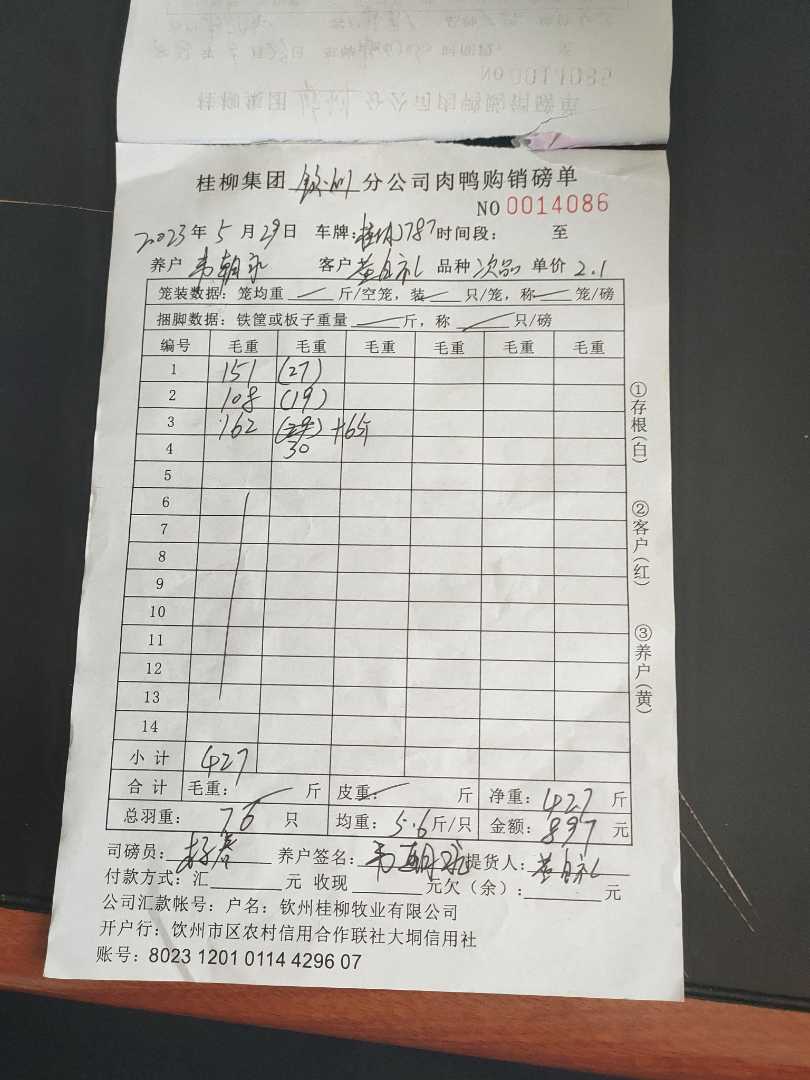 桂柳集团 钦州 分公司肉鸭购销磅单
NO 0014086
2023年 5 月 29日 车牌:桂 1787 时间段: 至
养户 韦朝 客户 黄自礼 品种 次品 单价 2.1
笼装数据: 笼均重 斤/空笼, 装 只/笼, 称 笼/磅
捆脚数据: 铁筐或板子重量 斤, 称 只/磅
编号 毛重 毛重 毛重 毛重 毛重 毛重
1 151 (27)
2 108 (19)
3 162 +6斤
4 30
5
6
7
8
9
10
11
12
13
14
小 计 427
合 计 毛重: 斤 皮重: 斤 净重: 427 斤
总羽重: 76 只 均重: 5.6 斤/只 金额: 897 元
司磅员: 养户签名: 韦朝 提货人: 黄自礼
付款方式: 汇 元 收现 元欠(余): 元
公司汇款帐号: 户名: 钦州桂柳牧业有限公司
开户行: 饮州市区农村信用合作联社大垌信用社
账号: 8023 1201 0114 4296 07
①存根(白)
②客户(红)
③养户(黄)